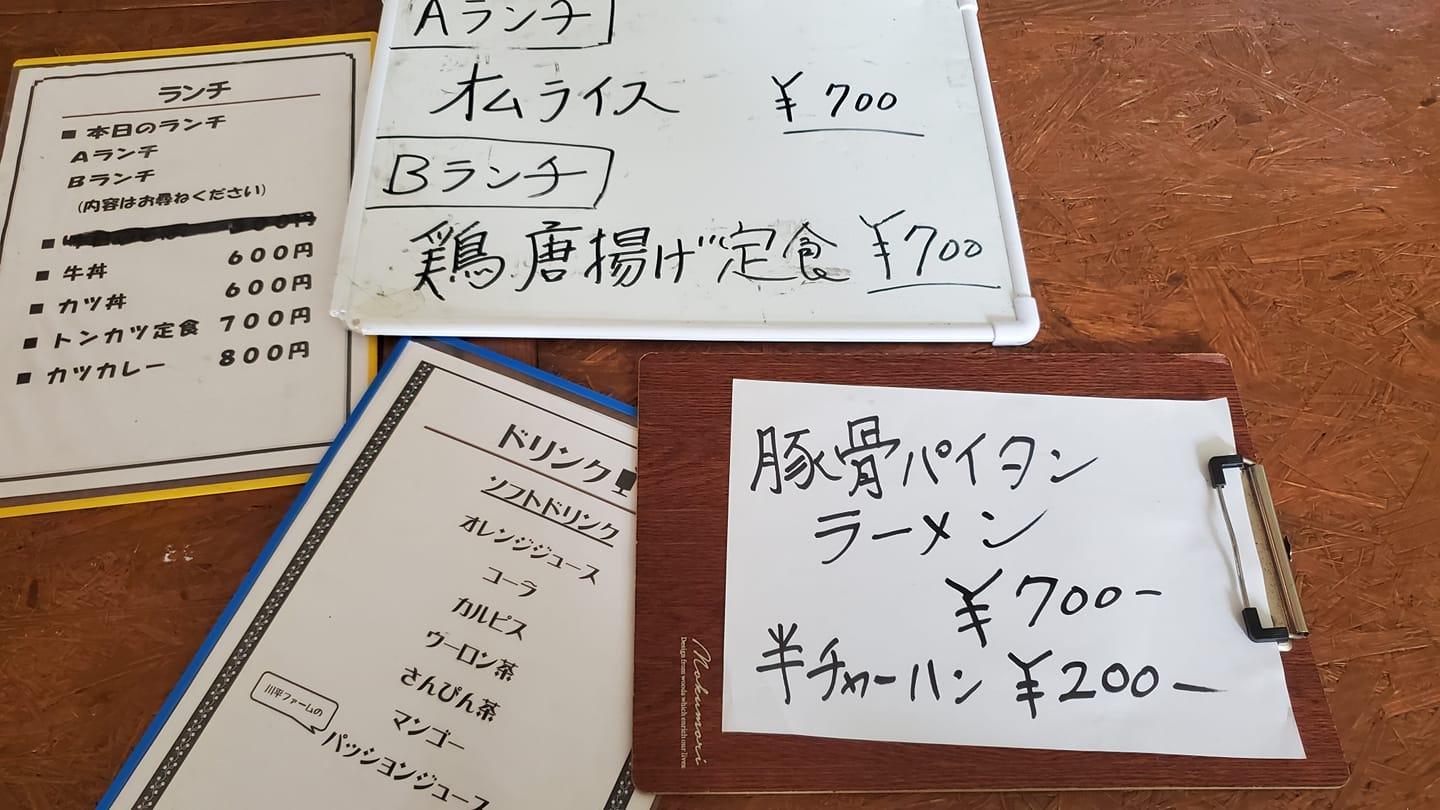 ランチ
■ 本日のランチ
Aランチ
Bランチ
(内容はお尋ねください)
■
■ 牛丼 600円
■ カツ丼 600円
■ トンカツ定食 700円
■ カツカレー 800円
Aランチ
オムライス ¥700
Bランチ
鶏唐揚げ定食 ¥700
ドリンク
ソフトドリンク
オレンジジュース
コーラ
カルピス
ウーロン茶
さんぴん茶
マンゴー
川平ファームの
パッションジュース
豚骨パイタン
ラーメン
¥700-
半チャーハン ¥200-
Mokumori
Design from wooda which enrich our lives